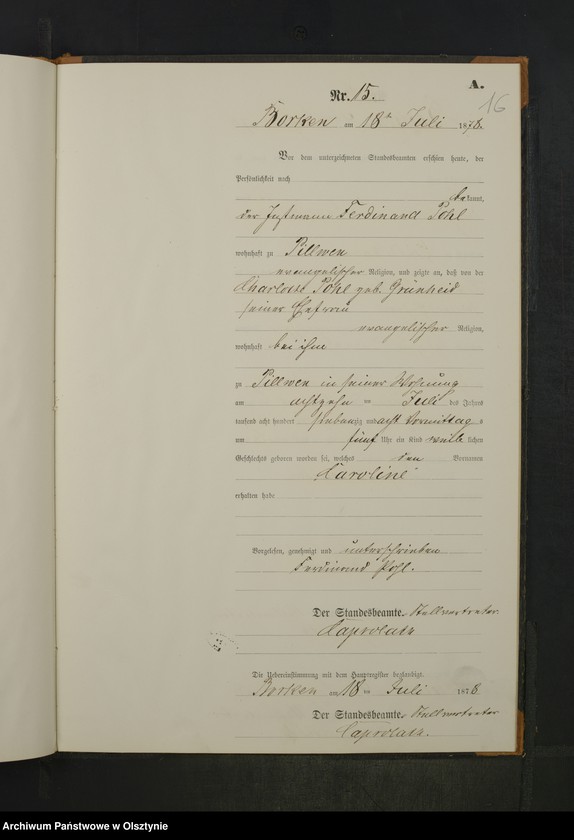 A.
16
Nr. 15.
Borken am 18ᵗ Juli 1878.
Vor dem unterzeichneten Standesbeamten erschien heute, der
Persönlichkeit nach
bekannt,
der Instmann Ferdinand Pohl
wohnhaft zu Pillwen
evangelischer Religion, und zeigte an, daß von der
Charlotte Pohl geb. Grünheid
seiner Ehefrau
evangelischer Religion,
wohnhaft bei ihm
zu Pillwen in seiner Wohnung
am achtzehn ten Juli des Jahres
tausend acht hundert siebenzig und acht Vormittags
um fünf Uhr ein Kind weiblichen
Geschlechts geboren worden sei, welches den Vornamen
Caroline
erhalten habe
Vorgelesen, genehmigt und unterschrieben
Ferdinand Pohl.
Der Standesbeamte. Stellvertreter
Die Uebereinstimmung mit dem Hauptregister beglaubigt.
Borken am 18 ten Juli 1878.
Der Standesbeamte. Stellvertreter
Archiwum Państwowe w Olsztynie